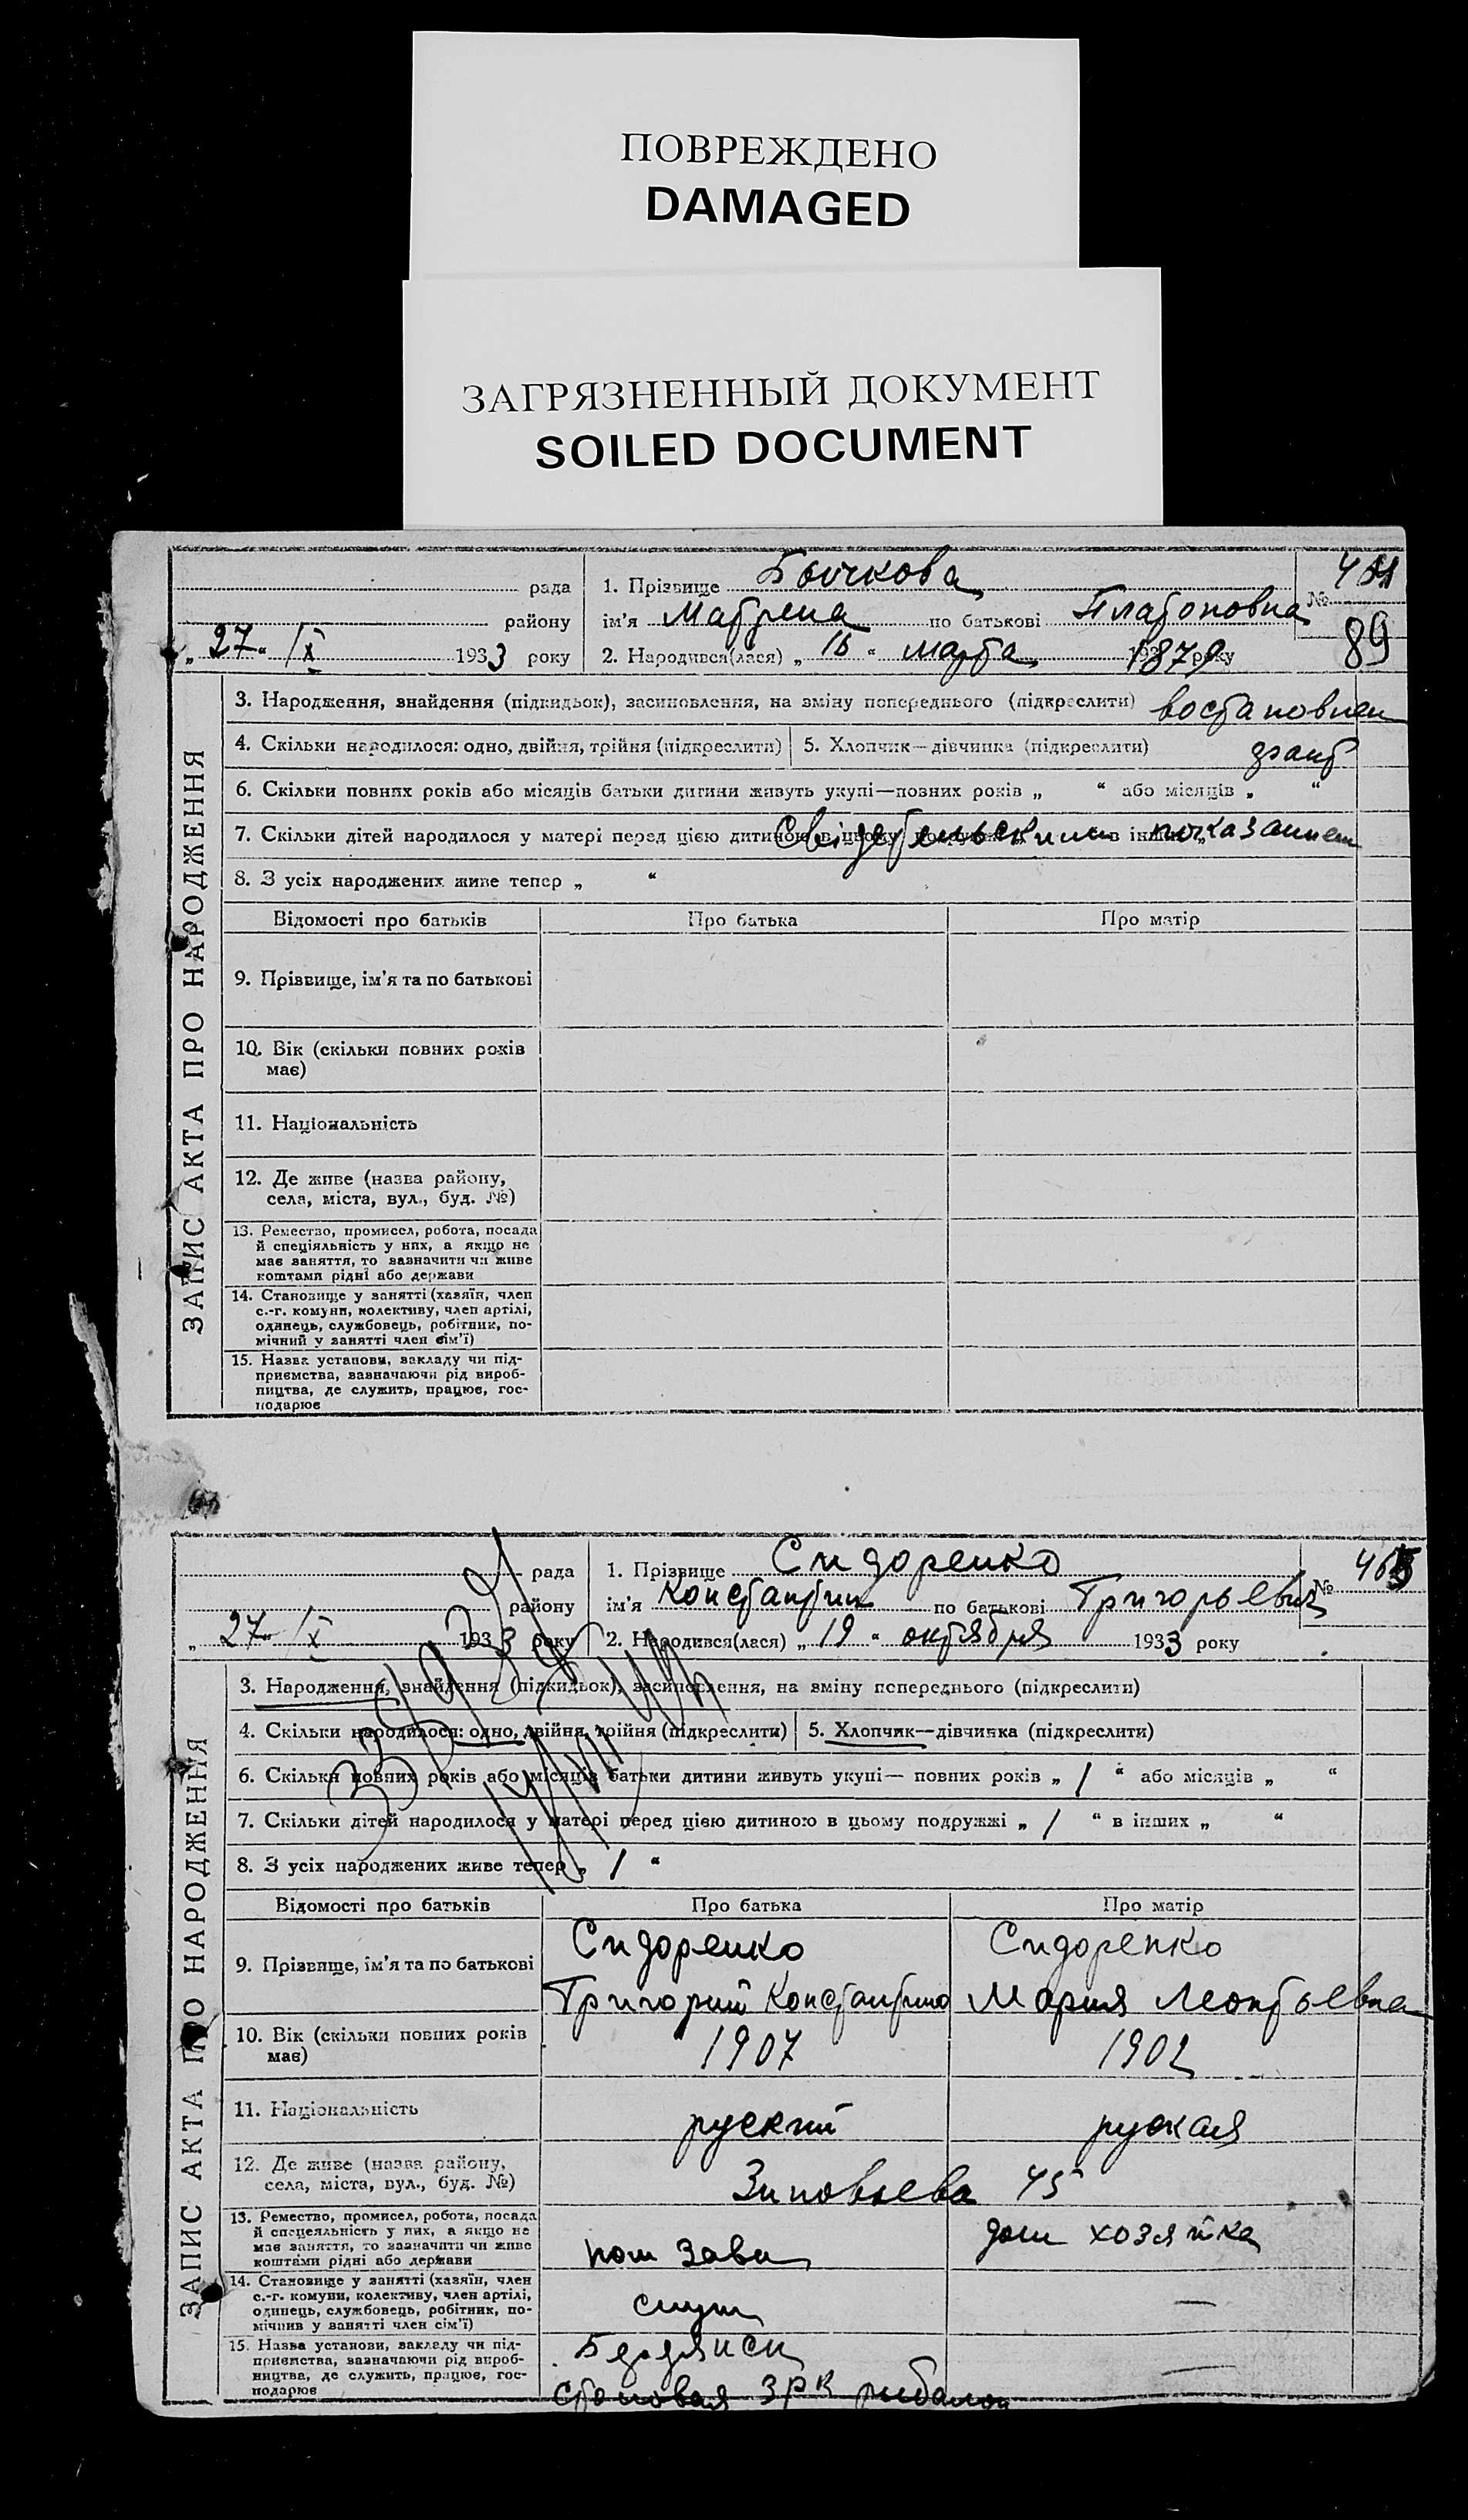 ПОВРЕЖДЕНО
DAMAGED
ЗАГРЯЗНЕННЫЙ ДОКУМЕНТ
SOILED DOCUMENT
рада
1. Прізвище Бычкова
№
району
ім'я Матрена по батькові Платоновна
89
„ 27 “ IX 1933 року
2. Народився(лася) „ 16 “ марта 1879 року
ЗАПИС АКТА ПРО НАРОДЖЕННЯ
3. Народження, знайдення (підкидьок), засиновлення, на зміну попереднього (підкреслити) востановлен
4. Скільки народилося: одно, двійня, трійня (підкреслити)
5. Хлопчик—дівчинка (підкреслити)
6. Скільки повних років або місяців батьки дитини живуть укупі—повних років „ “ або місяців „ “
7. Скільки дітей народилося у матері перед цією дитиною в цьому подружжі в інших показанием
8. З усіх народжених живе тепер „ “
Відомості про батьків
Про батька
Про матір
9. Прізвище, ім'я та по батькові
10. Вік (скільки повних років
має)
11. Національність
12. Де живе (назва району,
села, міста, вул., буд. №)
13. Ремество, промисел, робота, посада
й спеціяльність у них, а якщо не
має заняття, то зазначити чи живе
коштами рідні або держави
14. Становище у занятті (хазяїн, член
с.-г. комуни, колективу, член артілі,
одинець, службовець, робітник, по-
мічний у занятті член сім'ї)
15. Назва установи, закладу чи під-
приємства, зазначаючи рід вироб-
ництва, де служить, працює, гос-
подарює
рада
1. Прізвище Сидоренко
№
району
ім'я Константин по батькові Григорьевич
„ 27 “ IX 1933 року
2. Народився(лася) „ 19 “ октября 1933 року
ЗАПИС АКТА ПРО НАРОДЖЕННЯ
3. Народження, знайдення (підкидьок), засиновлення, на зміну попереднього (підкреслити)
4. Скільки народилося: одно, двійня, трійня (підкреслити)
5. Хлопчик—дівчинка (підкреслити)
6. Скільки повних років або місяців батьки дитини живуть укупі— повних років „ 1 “ або місяців „ “
7. Скільки дітей народилося у матері перед цією дитиною в цьому подружжі „ 1 “ в інших „ “
8. З усіх народжених живе тепер „ 1 “
Відомості про батьків
Про батька
Про матір
9. Прізвище, ім'я та по батькові
Сидоренко
Григорий Константино
Сидоренко
Мария Леонтьевна
10. Вік (скільки повних років
має)
1907
1902
11. Національність
руский
руская
12. Де живе (назва району,
села, міста, вул., буд. №)
Зиновьева 45
13. Ремество, промисел, робота, посада
й спецеяльність у них, а якщо не
має заняття, то зазначити чи живе
коштами рідні або держави
пом зава
дом хозяйка
14. Становище у занятті (хазяїн, член
с.-г. комуни, колективу, член артілі,
одинець, службовець, робітник, по-
мічник у занятті член сім'ї)
служ
—
15. Назва установи, закладу чи під-
приємства, зазначаючи рід вироб-
ництва, де служить, працює, гос-
подарює
столовая ЗРК
—